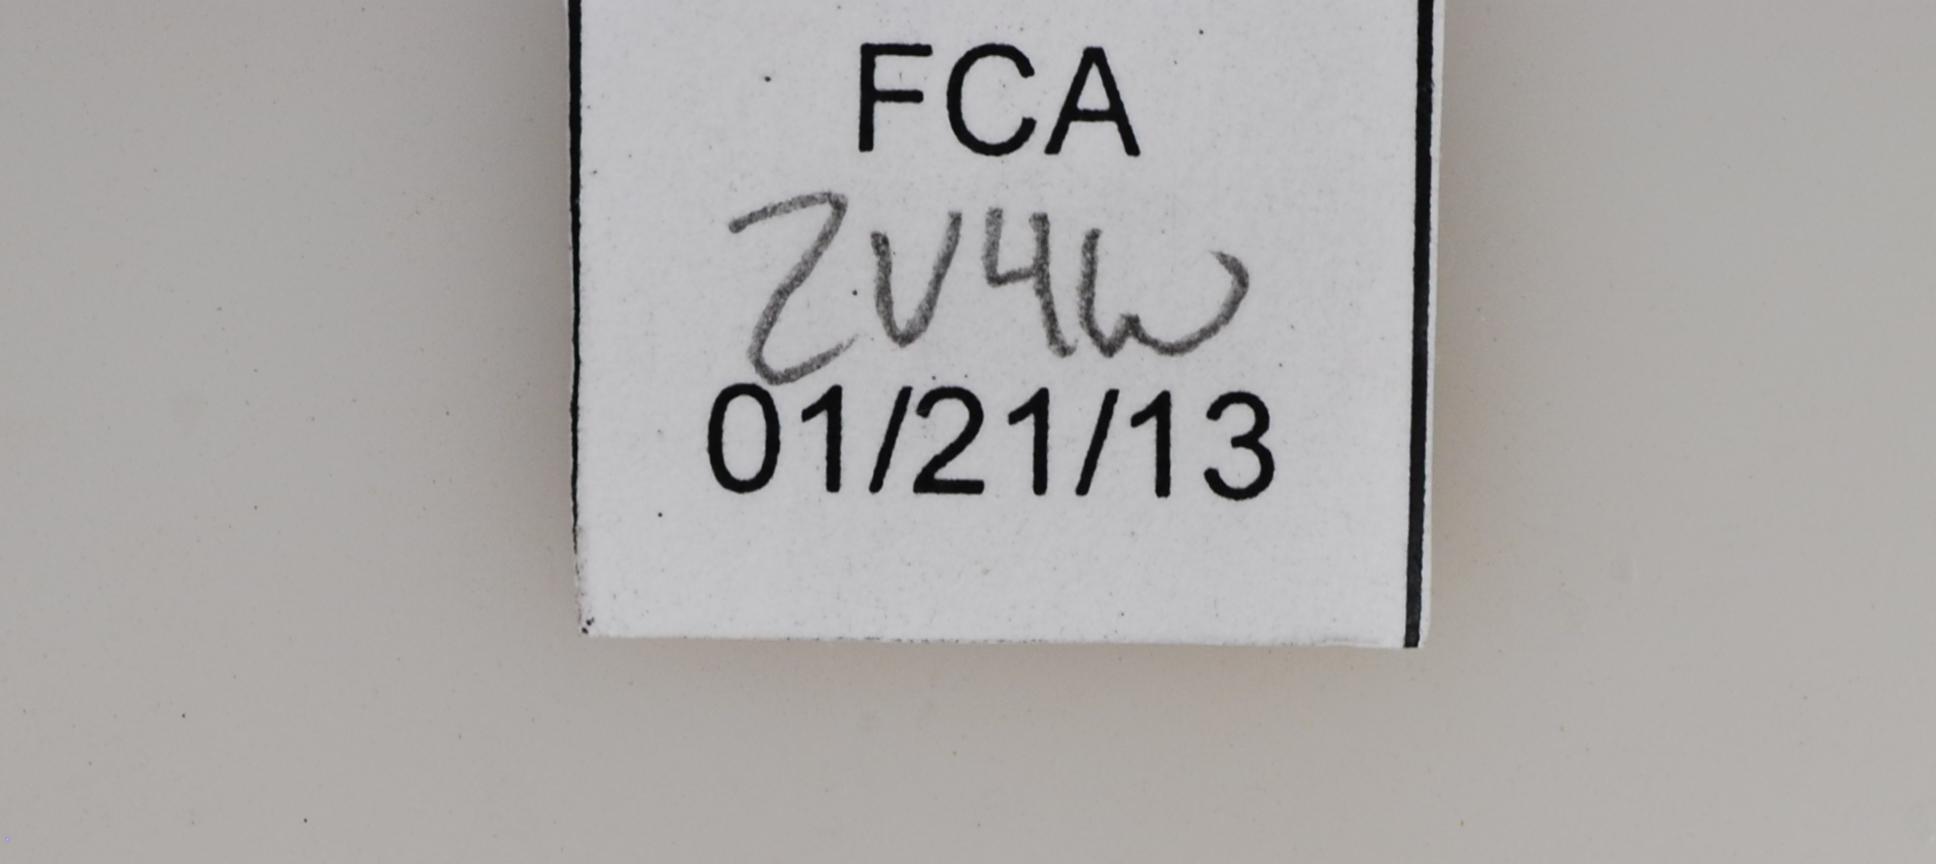 FCA
ZV4W
01/21/13